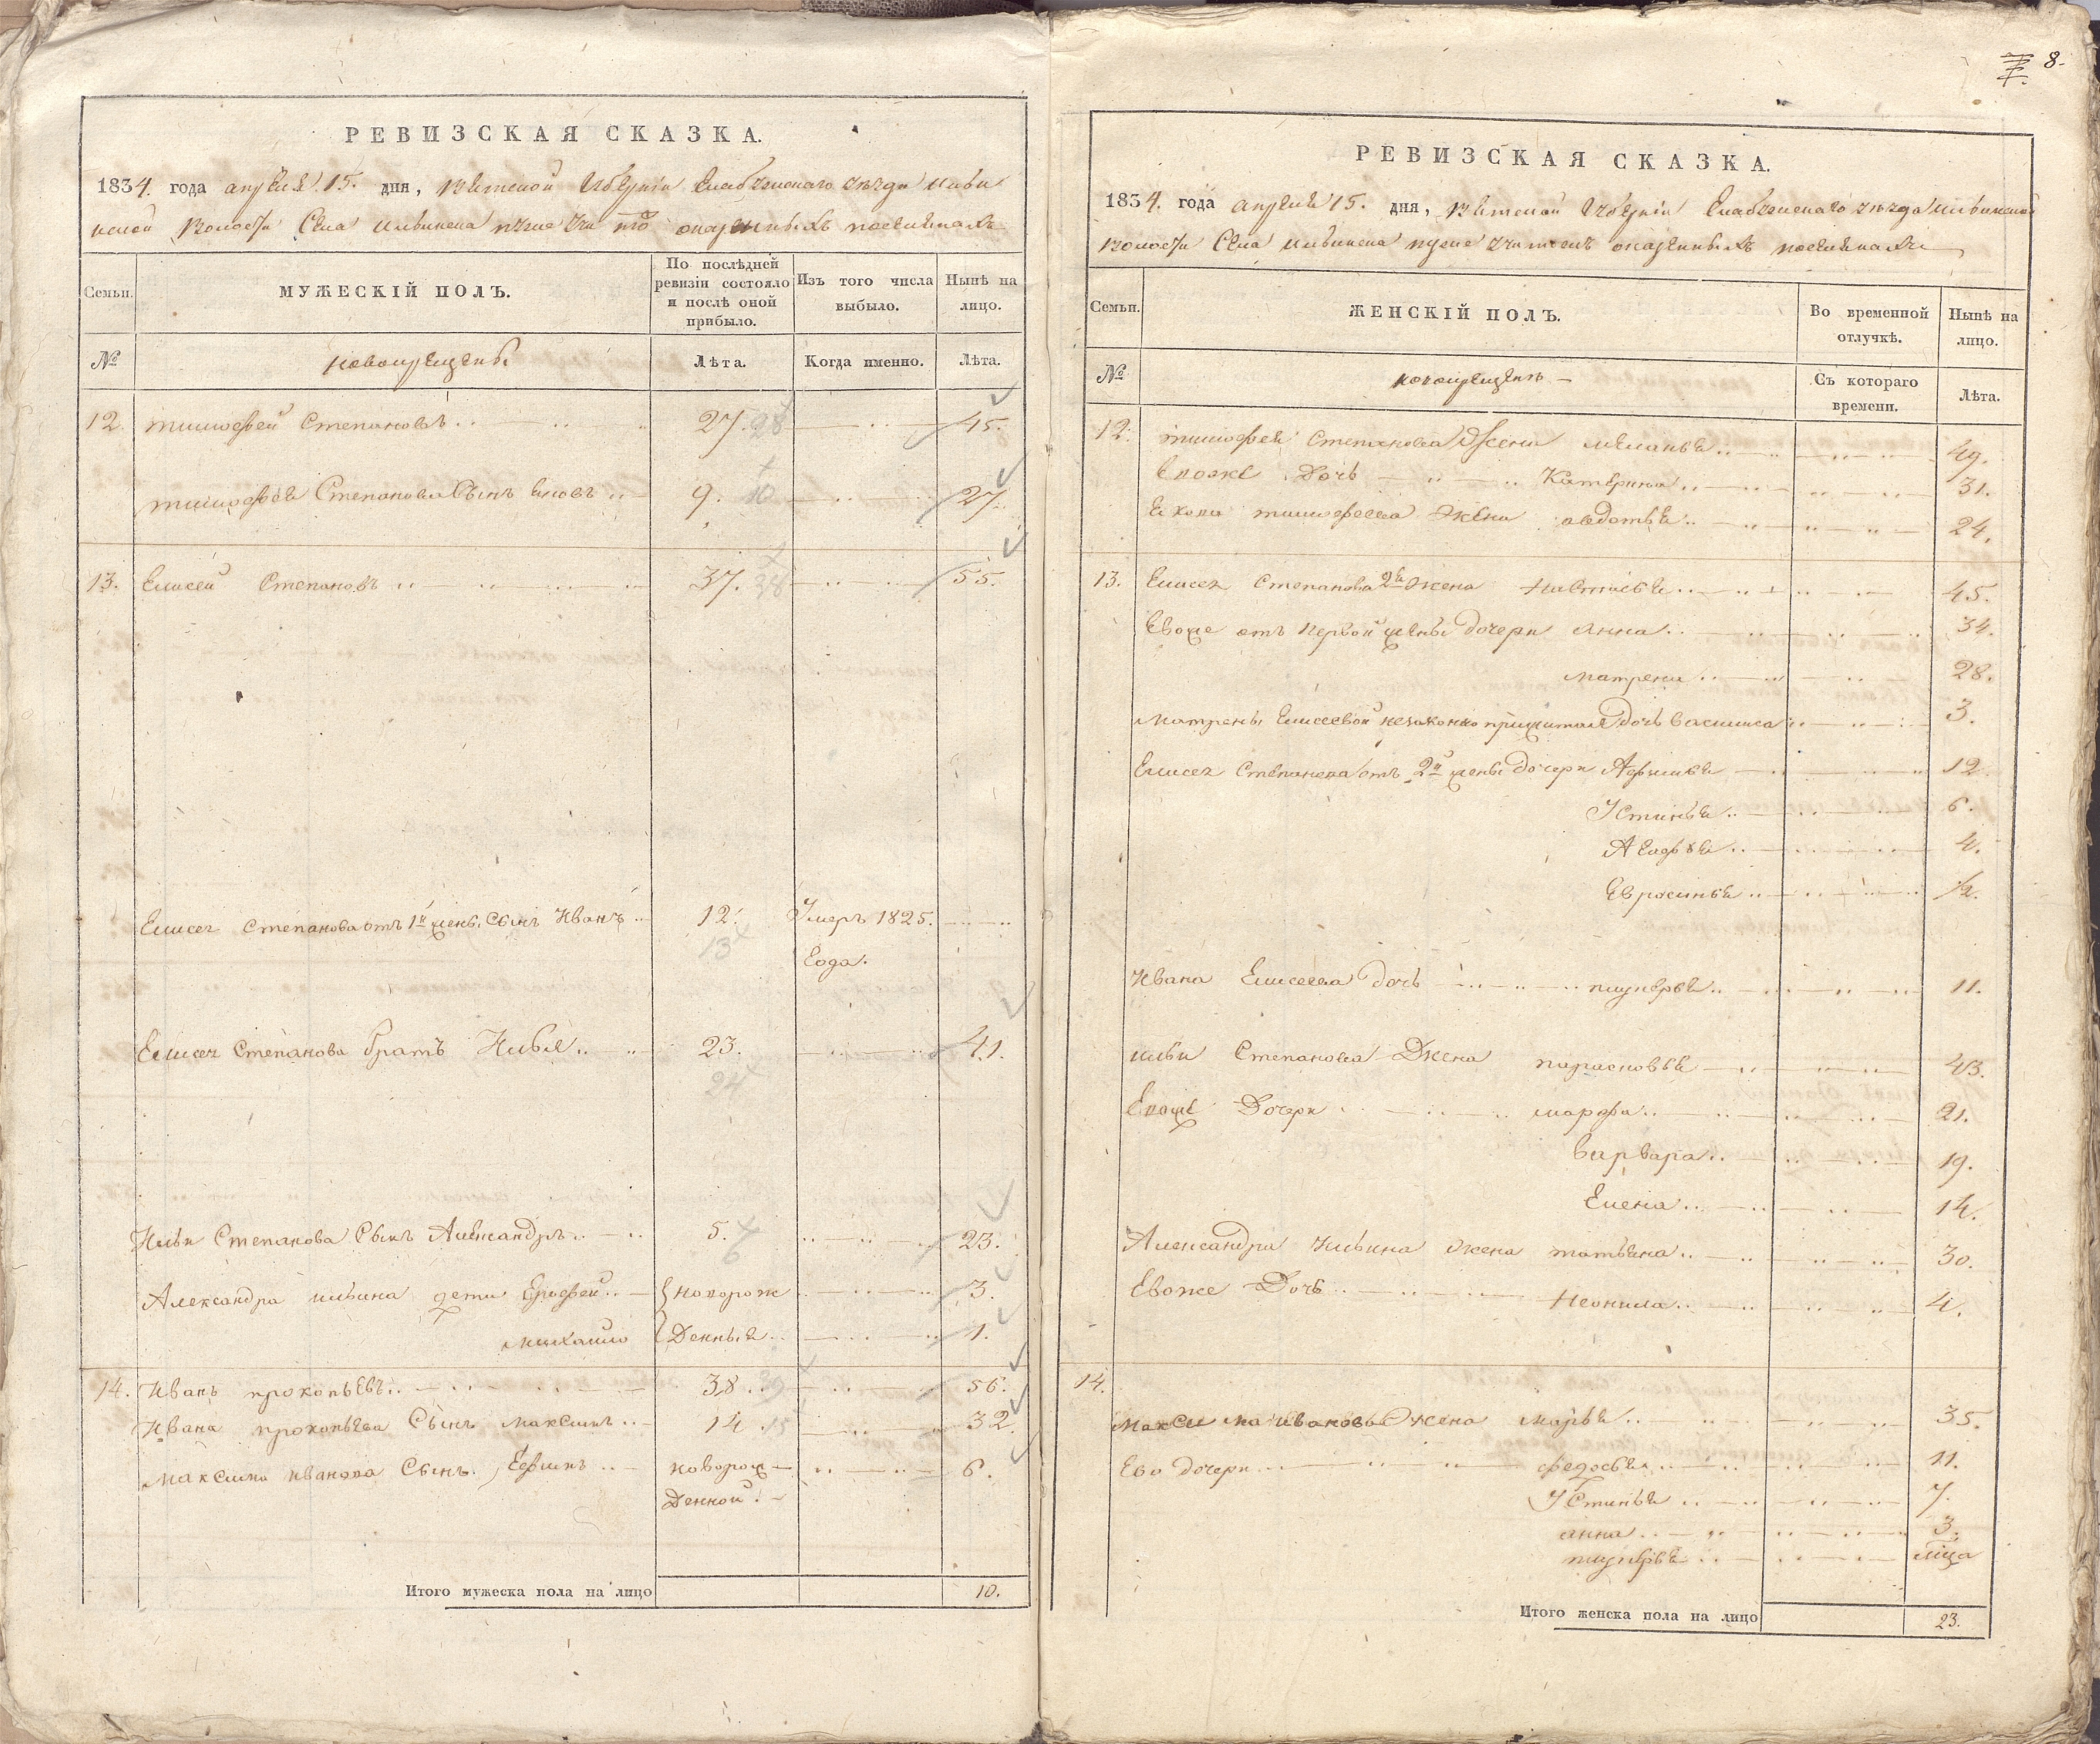 РЕВИЗСКАЯ СКАЗКА.
1834. года апреля 15. дня, Вятской Губернiи Елабужскаго уезда Ильин
ской волости Села Ильинска оказенныхъ поселянахъ
Семьи.
МУЖЕСКІЙ ПОЛЪ.
По послѣдней ревизіи состояло и послѣ оной прибыло.
Изъ того числа выбыло.
Нынѣ на лицо.
№
новокрещены
Лѣта.
Когда именно.
Лѣта.
12. тимофей Степановъ 27. 28 45.
тимофея Степанова Сынъ 9. 10 27.
13. Елисей Степановъ 37. 38 55.
Елисея Степанова отъ 1й жены Сынъ Иванъ 12. Умеръ 1825.
13 Года.
Елисея Степанова братъ Илья 23. 41.
24
Ильи Степанова Сынъ Александръ 5. 23.
6
Александра ильина дети Ерофей новорож 3.
михаило Денныя 1.
14. Иванъ прокопьевъ 38. 39 56.
Ивана прокопьева Сынъ максимъ 14. 15 32.
максима иванова Сынъ Ефимъ новорож 6.
Денной.
Итого мужеска пола на лицо 10.
8.
РЕВИЗСКАЯ СКАЗКА.
1834. года апреля 15. дня, Вятской Губернiи Елабужскаго уезда Ильинской
волости Села Ильинска оказенныхъ поселянахъ
Семьи.
ЖЕНСКІЙ ПОЛЪ.
Во временной отлучкѣ.
Нынѣ на лицо.
№
новокрещенъ
Съ котораго времени.
Лѣта.
12. тимофея степанова Жена меланья 49.
Евоже Дочь Катерина 31.
тимофеева жена авдотья 24.
13. Елисея Степанова 2я жена настасья 45.
Евоже отъ первой жены дочери анна 34.
матрена 28.
матрены Елисеевой незаконно прижитая Дочь василиса 3.
Елисея Степанова отъ 2й жены дочери Афимья 12.
Устинья 6.
Агафья 4.
Евросинья 1/2.
Ивана Елисеева дочь 11.
ильи Степанова Жена парасковья 43.
Евоже Дочери марфа 21.
варвара 19.
Елена 14.
Александра Ильина жена татьяна 30.
Евоже Дочь Неонила 4.
14.
максима иванова жена марья 35.
Ево дочери федосья 11.
Устинья 7.
анна 3.
Итого женска пола на лицо 23.